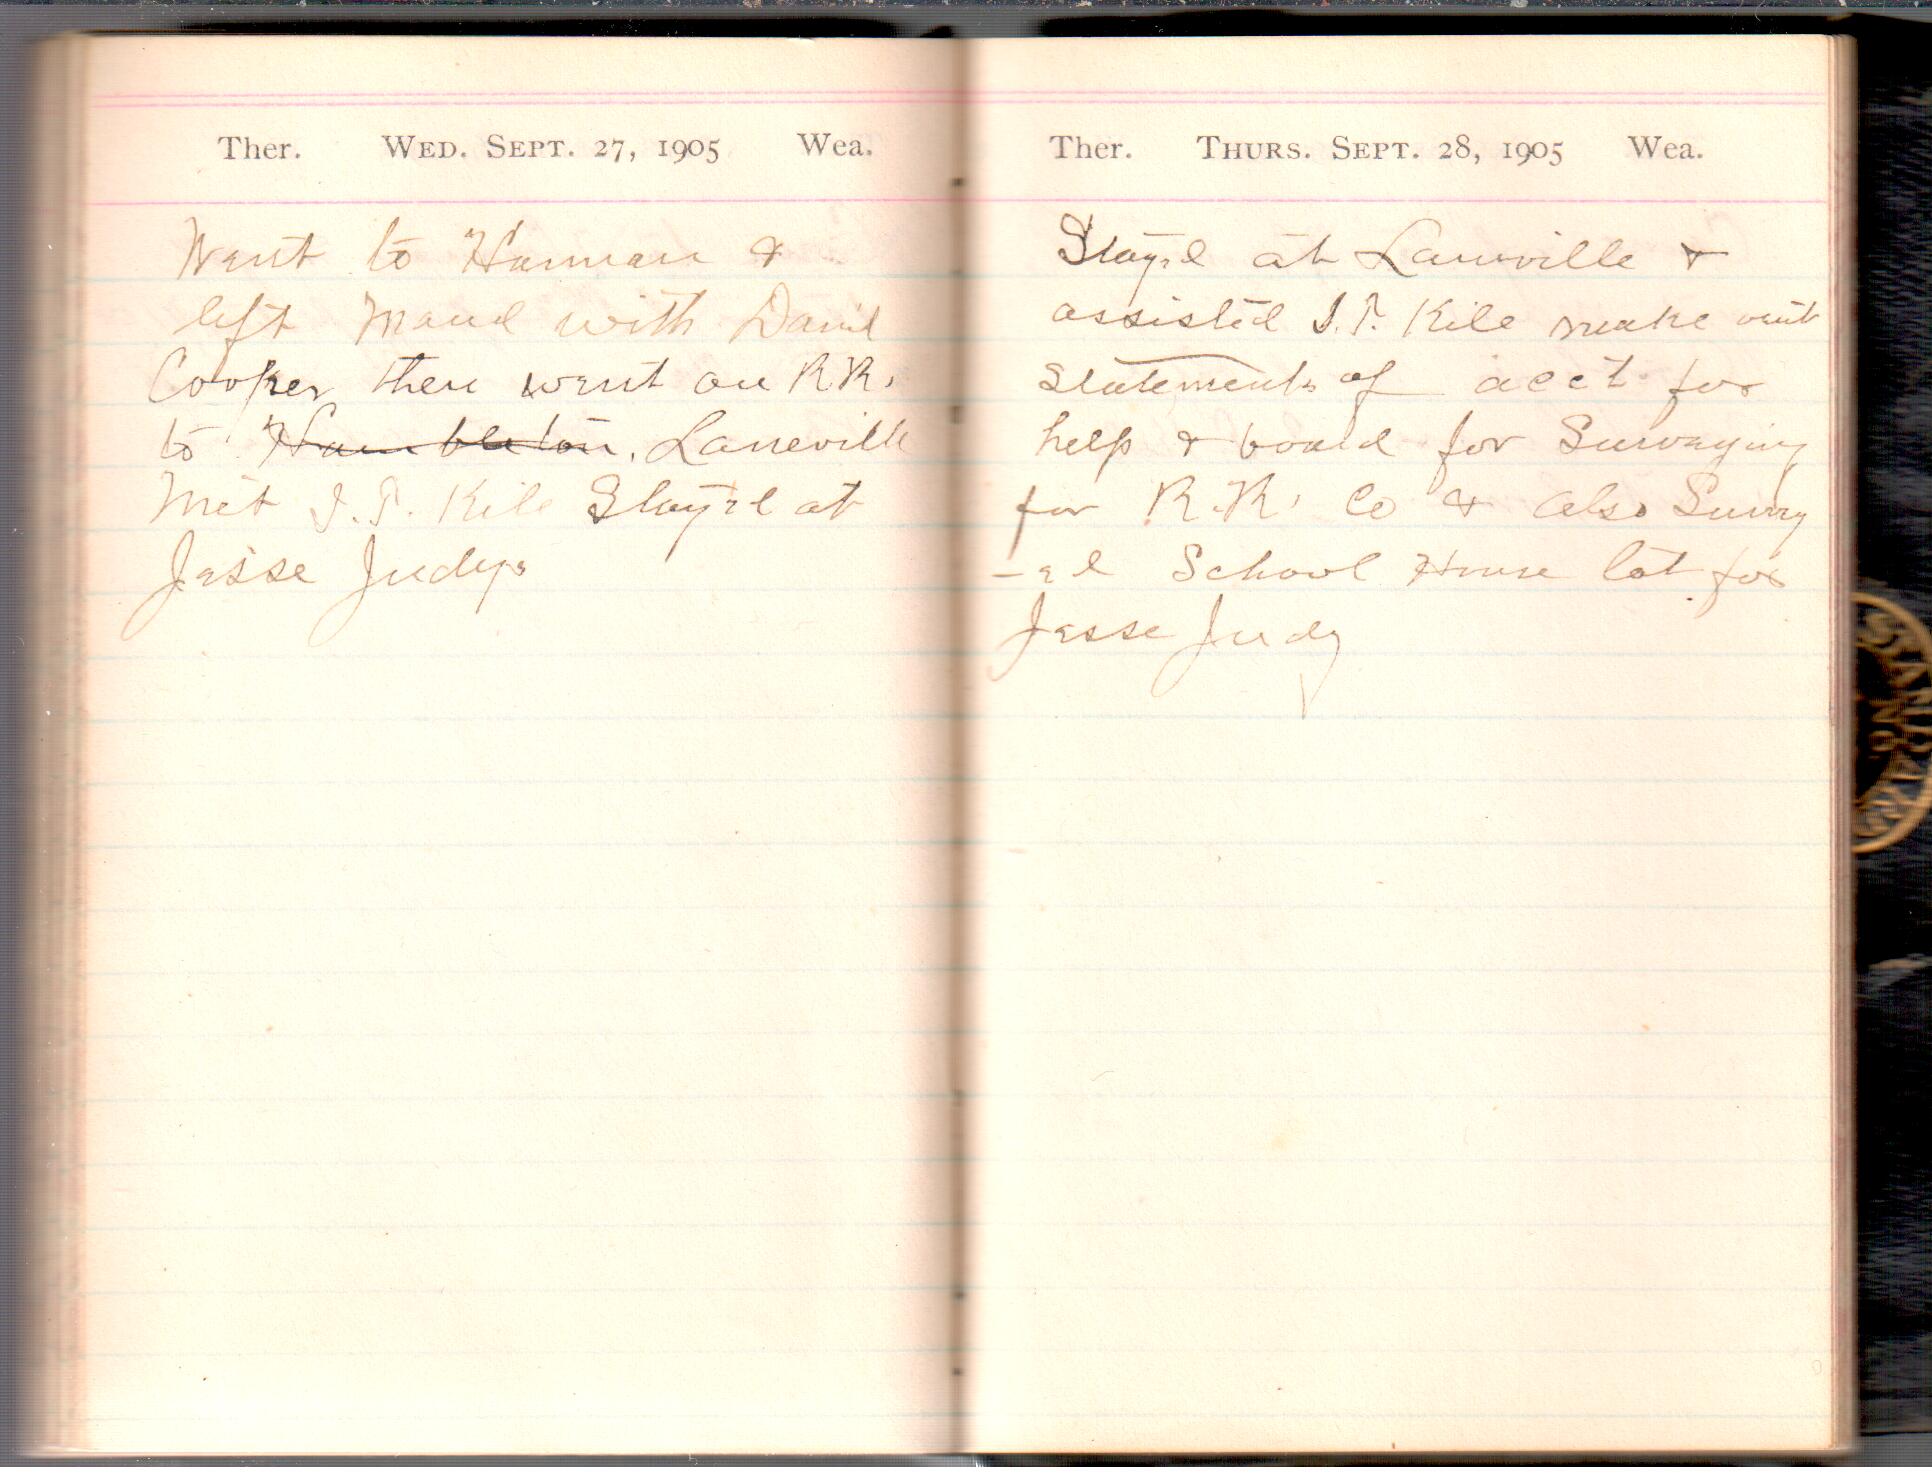 Ther. Wed. Sept. 27, 1905 Wea.
Went to Harman &
left Maud with David
Cooper then went on R.R.
to Hambleton. Laneville
Met I.T. Kile Stayed at
Jesse Judys
Ther. Thurs. Sept. 28, 1905 Wea.
Stayed at Laneville &
assisted I.T. Kile make out
Statements of acct for
help & board for Surveying
for R.R. Co & also Survey
-ed School House lot for
Jesse Judy